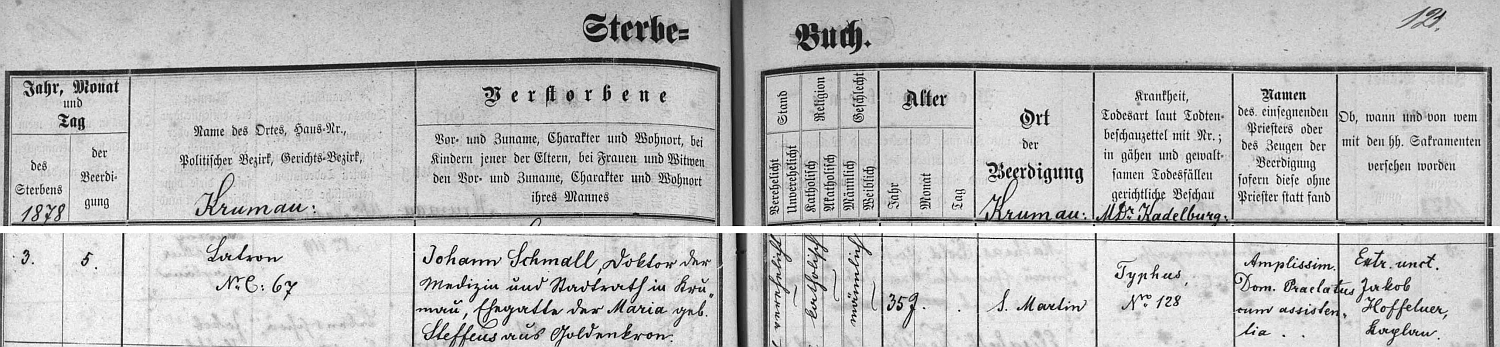 Sterbe=
Buch.
121.
Jahr, Monat
und
Tag
des
Sterbens
1878
der
Beerdi-
gung
Name des Ortes, Haus-Nr.,
Politischer Bezirk, Gerichts-Bezirk,
Krumau:
Verstorbene
Vor- und Zuname, Charakter und Wohnort, bei
Kindern jener der Eltern, bei Frauen und Witwen
den Vor- und Zuname, Charakter und Wohnort
ihres Mannes
Stand
Verehelicht
Unverehelicht
Religion
Katholisch
Akatholisch
Geschlecht
Männlich
Weiblich
Alter
Jahr
Monat
Tag
Ort
der
Beerdigung
Krumau:
Krankheit,
Todesart laut Todten-
beschauzettel mit Nr.;
in gähen und gewalt-
samen Todesfällen
gerichtliche Beschau
MDr Kadelburg:
Namen
des einsegnenden
Priesters oder
des Zeugen der
Beerdigung
sofern diese ohne
Priester statt fand
Ob, wann und von wem
mit den hh. Sakramenten
versehen worden
3.
5.
Latron
No C: 67
Johann Schmall, Doktor der
Medizin und Stadtrath in Kru-
mau, Ehegatte der Maria geb.
Steffens aus Goldenkron.
verehelicht
katholisch
männlich
35 J.
S. Martin
Typhus,
No 128
Amplissim.
Dom. Praelatus
cum assisten-
tia.
Extr. unct.
Jakob
Hoffelner,
Kaplan.